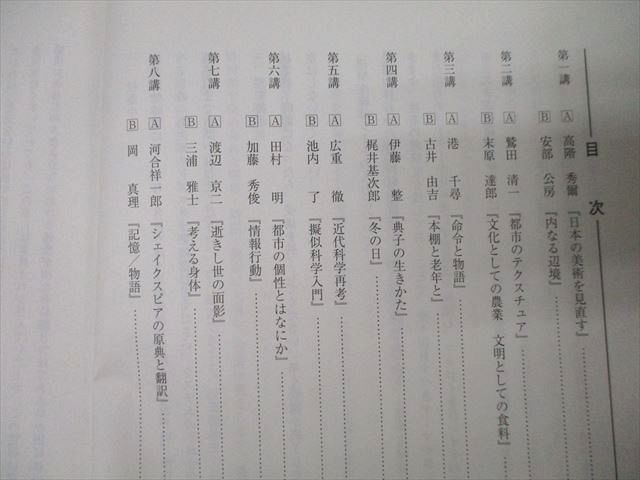 目次
第一講 A 高階 秀爾 『日本の美術を見直す』
B 安部 公房 『内なる辺境』
第二講 A 鷲田 清一 『都市のテクスチュア』
B 末原 達郎 『文化としての農業 文明としての食料』
第三講 A 港 千尋 『命令と物語』
B 古井 由吉 『本棚と老年と』
第四講 A 伊藤 整 『典子の生きかた』
B 梶井基次郎 『冬の日』
第五講 A 広重 徹 『近代科学再考』
B 池内 了 『擬似科学入門』
第六講 A 田村 明 『都市の個性とはなにか』
B 加藤 秀俊 『情報行動』
第七講 A 渡辺 京二 『逝きし世の面影』
B 三浦 雅士 『考える身体』
第八講 A 河合祥一郎 『シェイクスピアの原典と翻訳』
B 岡 真理 『記憶／物語』